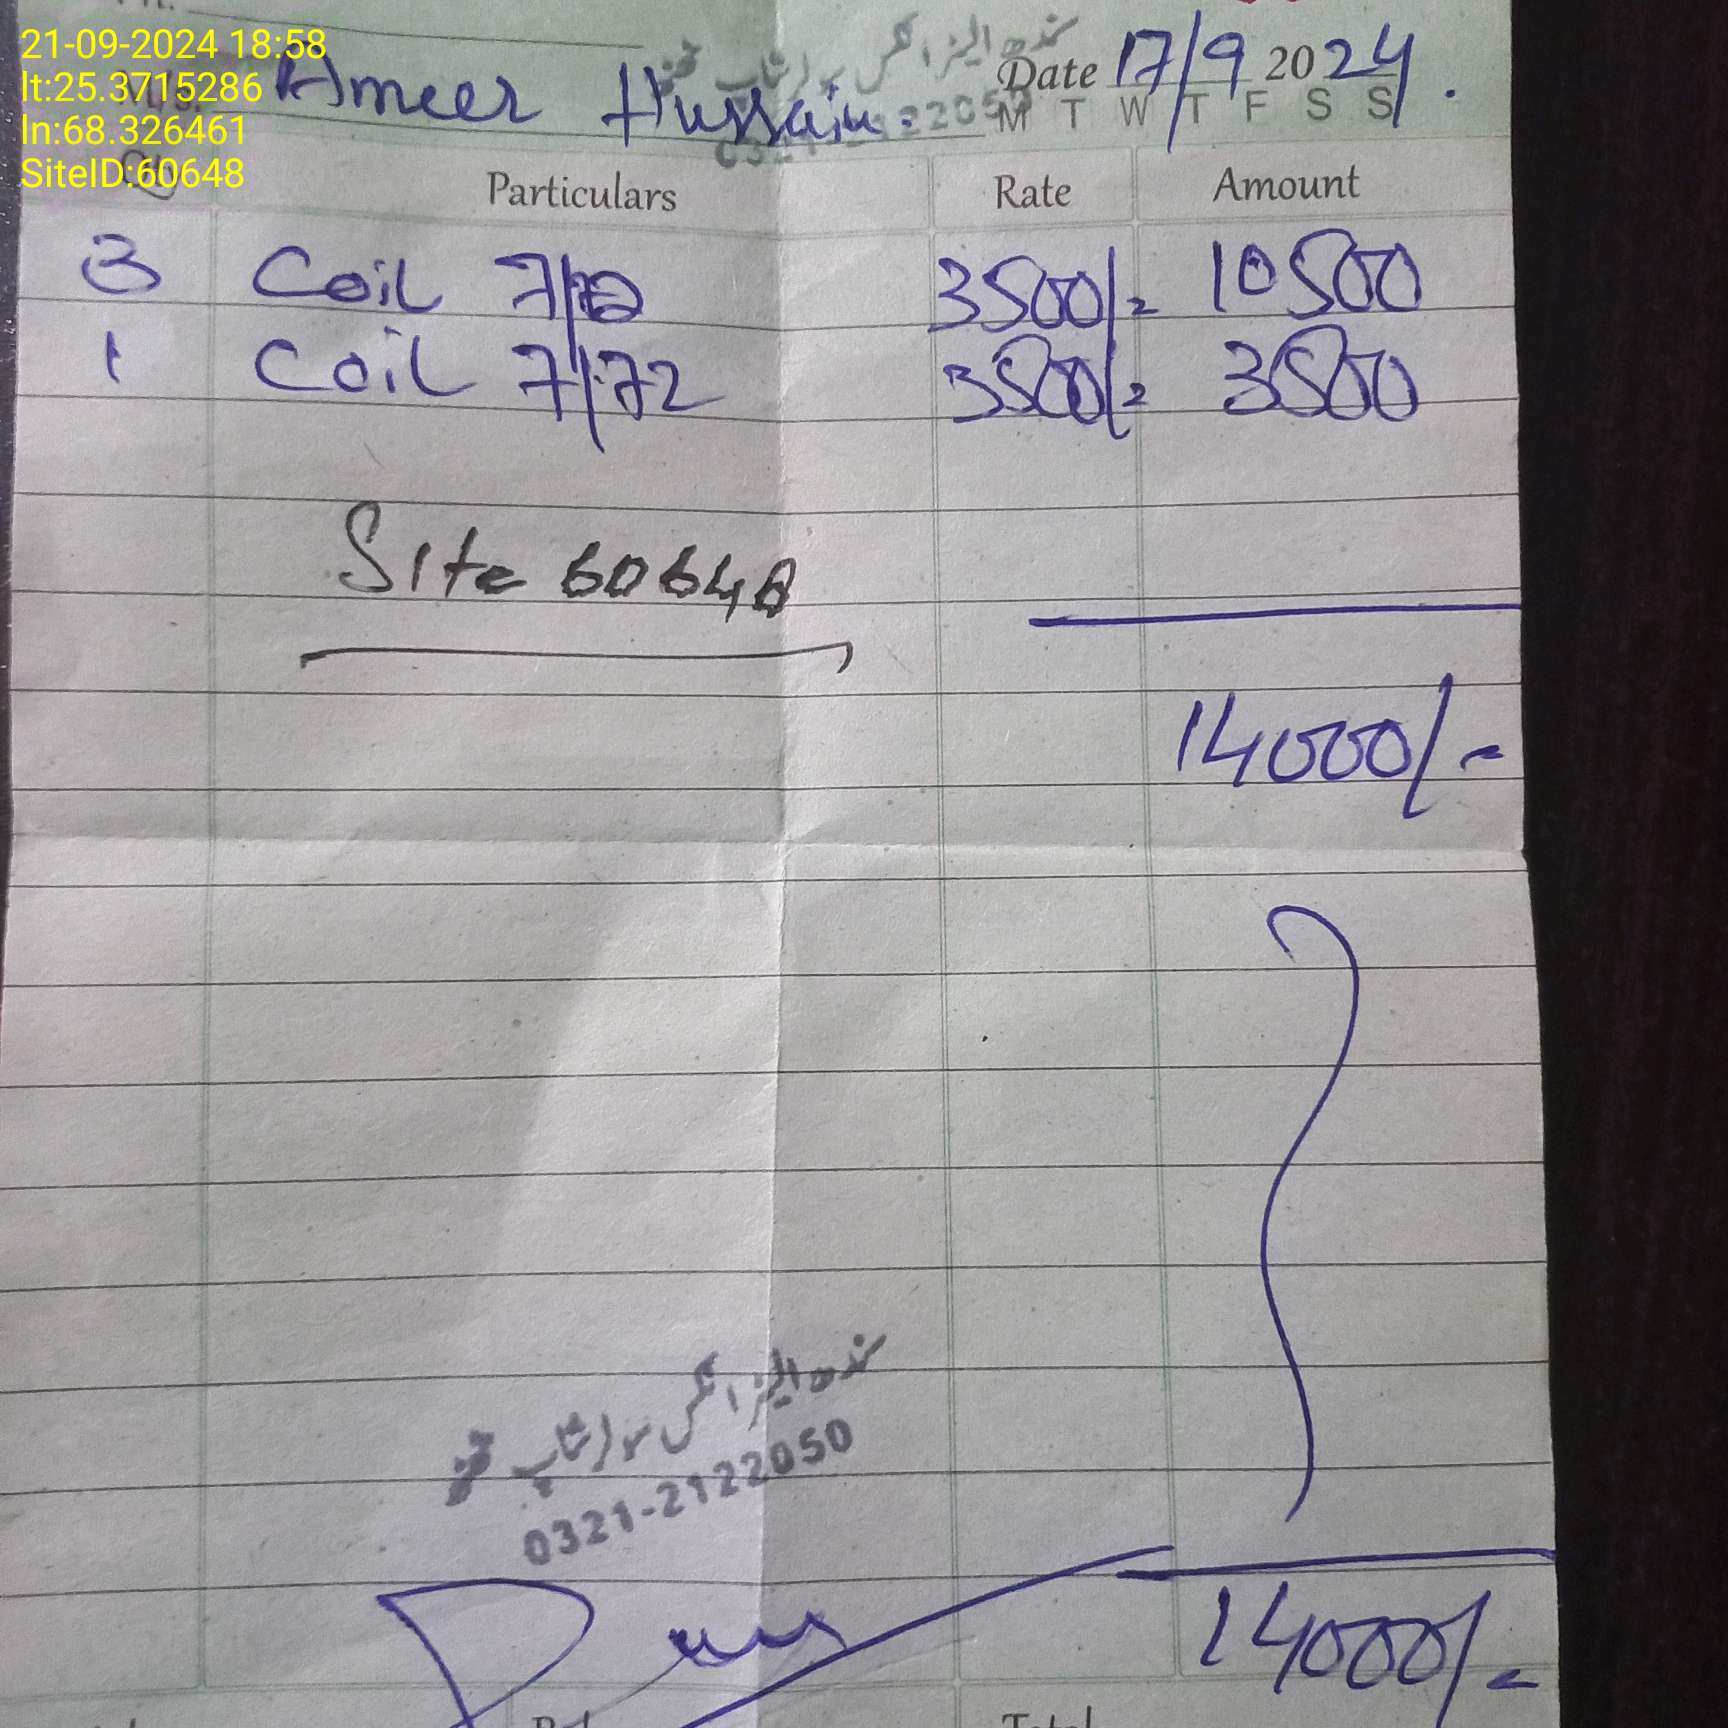 21-09-2024 18:58
lt:25.3715286
ln:68.326461
SiteID:60648
Ameer Hussain.
Date 17/9 2024.
M T W T F S S
Qty Particulars Rate Amount
3 Coil 7/ 3500/= 10500
1 Coil 7/.72 3500/= 3500
Site 60648
14000/-
سندھ الیکٹرا
0321-2122050
14000/-
Total